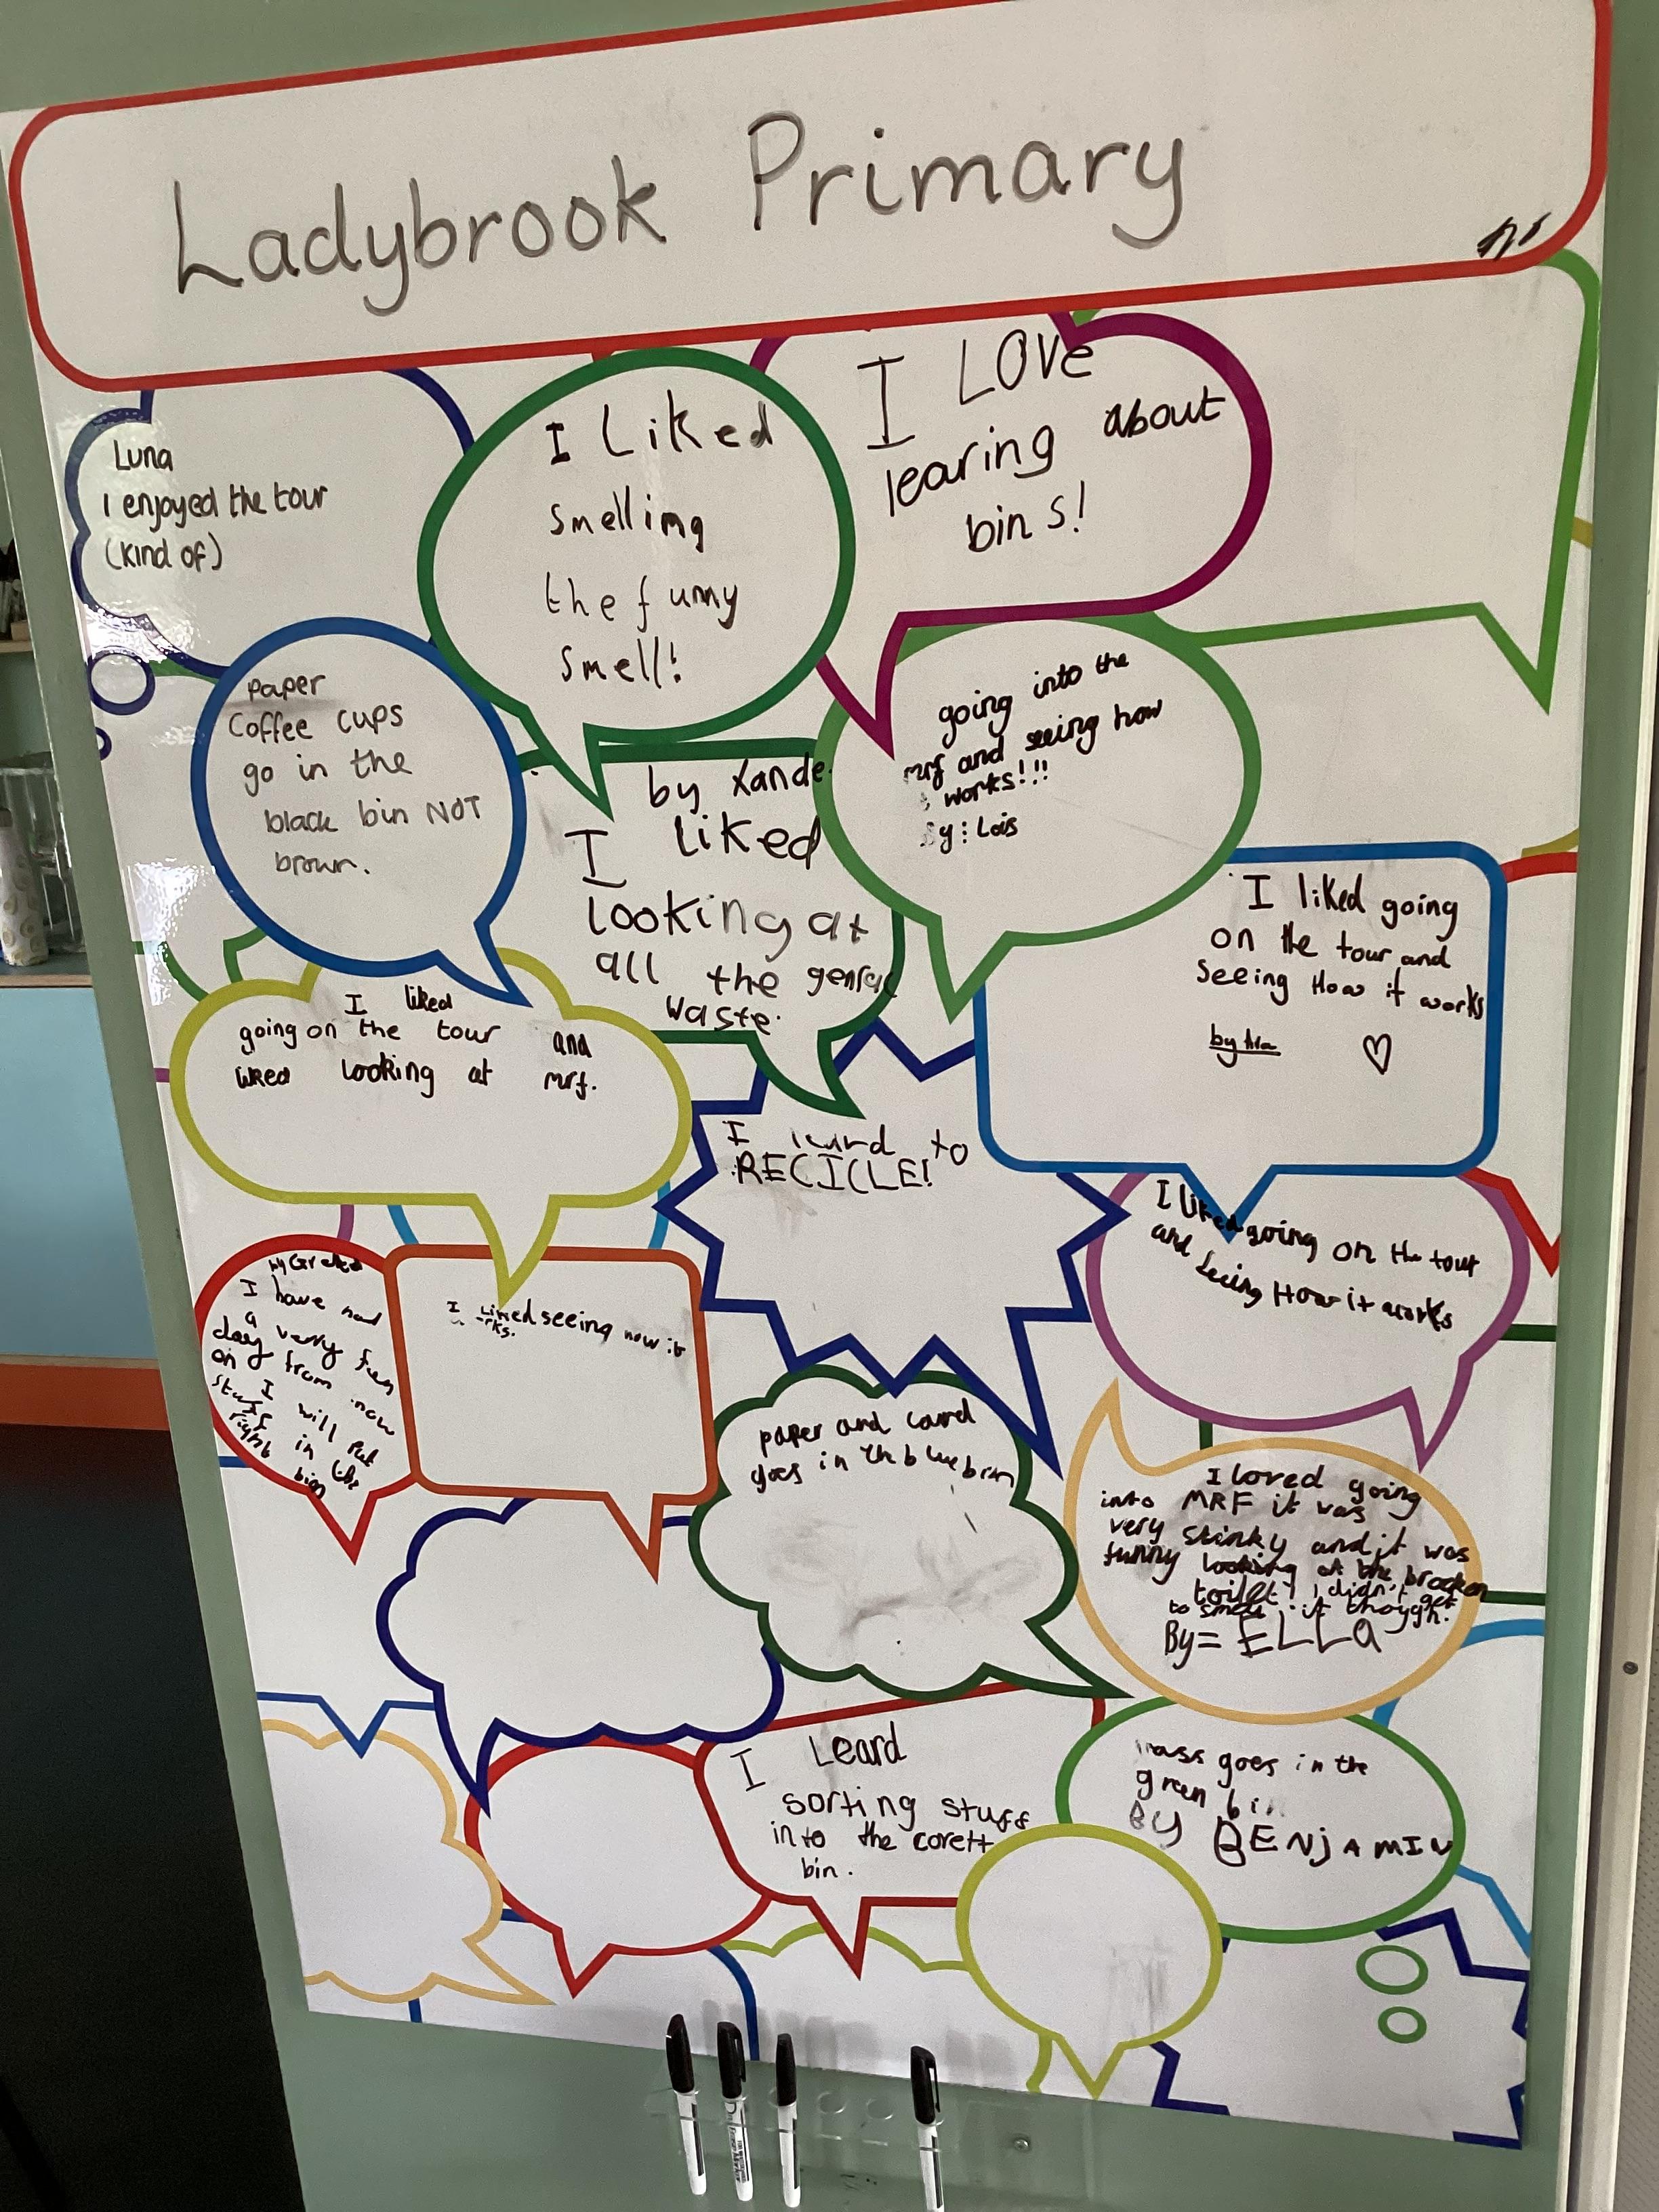 Ladybrook Primary
Luna
I enjoyed the tour
(kind of)
I Liked
smelling
the funny
smell!
I LOVe
learing about
bins!
paper
Coffee cups
go in the
black bin NOT
brown.
by Xande
I liked
looking at
all the
waste.
going into the
mrf and seeing how
works!!!
y: Lois
I liked going
on the tour and
seeing How it works
by
I liked
going on the tour and
liked looking at mrf.
I to
RECICLE!
I liked going on the tour
and seeing How it works
I have had
a very fun
day from now
on I will put
stuff in the
bin
I liked seeing how it
rks.
paper and card
goes in the blue bin
I loved going
into MRF it was
very stinky and it was
funny looking at the brocken
toilet! I didn't get
to smell it though.
By= ELLa
I Leard
sorting stuff
into the corett
bin.
goes in the
green bin
By BENjAMIN